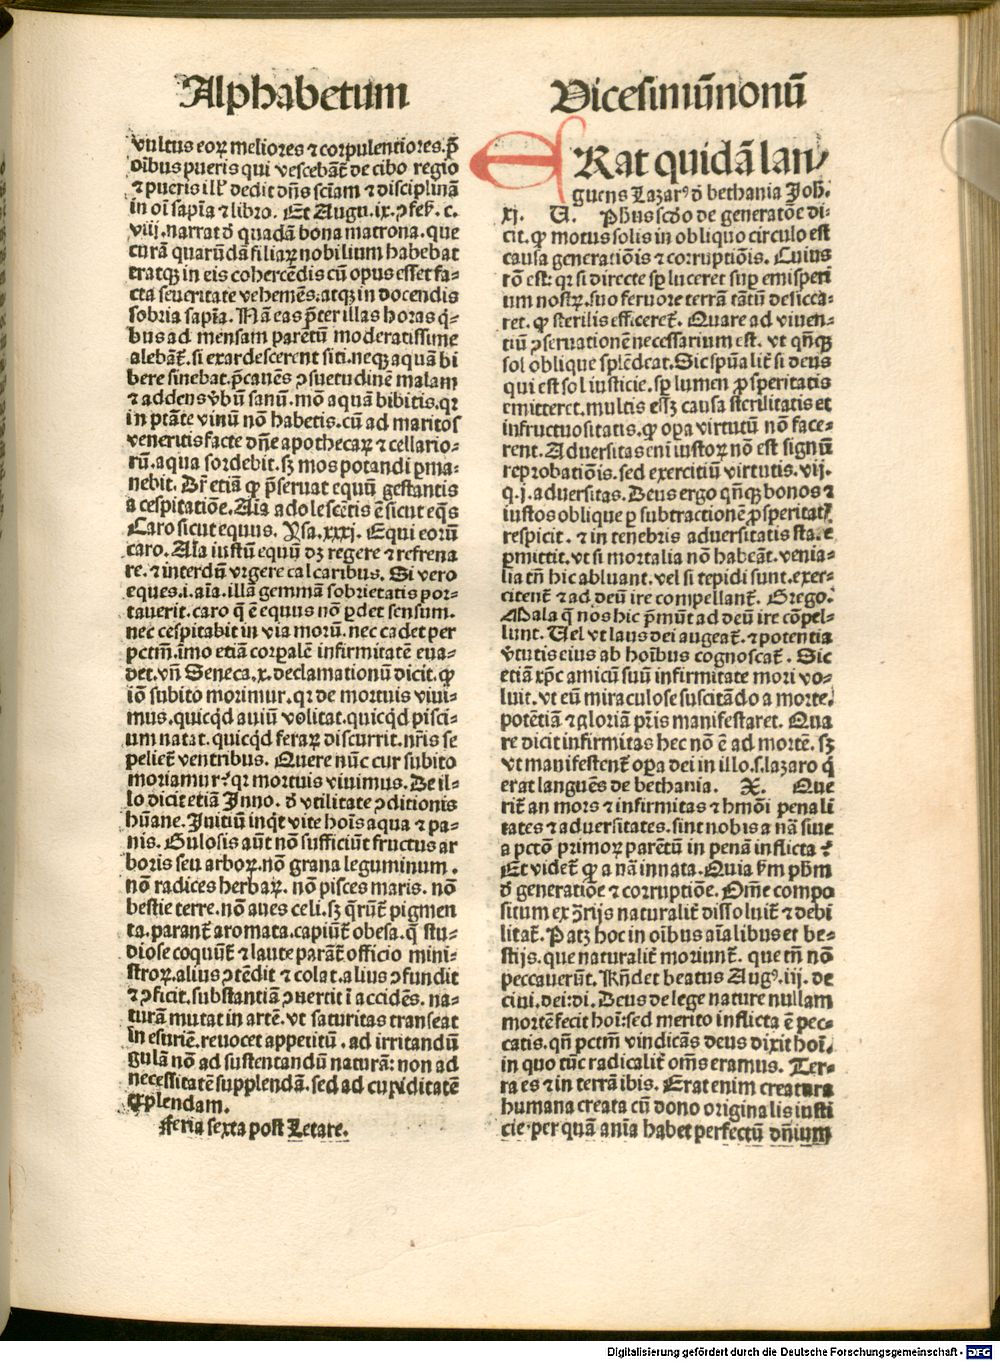 Alphabetum
vultus eoꝝ meliores ⁊ corpulentiores. p̄
oībus pueris qui vescebāt̄ de cibo regio
⁊ pueris illꝭ dedit dn̄s sc̄iam ⁊ disciplinā
in oī sapīa ⁊ libro. Et Augu. ix. ꝯfeſ. c.
viij. narrat ď quadā bona matrona. que
curā quarūdā filiaꝝ nobilium habebat
eratqꝫ in eis cohercēdis cū opus esset fa⸗
cta seueritate vehemēs. atqꝫ in docendis
sobria sapīa. Nā eas p̄ter illas horas q̇⸗
bus ad mensam parētū moderatissime
alebāt̄. si exardescerent siti. neqꝫ aquā bi
bere sinebat. p̄cauēs ꝯsuetudinē malam
⁊ addens v̄bū sanū. mō aquā bibitis. qꝛ
in ptāte vinū nō habetis. cū ad maritos
veneritis facte dn̄e apothecaꝝ ⁊ cellario⸗
rū. aqua sordebit. sꝫ mos potandi ꝑma⸗
nebit. Br̄ etiā ꝙ p̄seruat equū gestantis
a cespitatiōe. Aīa adolescētis ē sicut eq̄s
Caro sicut equus. Ysa. xxxj. Equi eorū
caro. Aīa iustū equū dꝫ regere ⁊ refrena
re. ⁊ interdū vrgere calcaribus. Si vero
eques. i. aīa. illā gemmā sobrietatis por⸗
tauerit. caro q̄ ē equus nō ꝑdet sensum.
nec cespitabit in via morū. nec cadet per
pctm̄. īmo etiā corꝑalē infirmitatē eua⸗
det. vn̄ Seneca. x. declamationū dicit. ꝙ
iō subito morimur. qꝛ de mortuis viui⸗
mus. quicq̇d auiū volitat. quicq̇d pisci⸗
um natat. quicq̇d feraꝝ discurrit. nr̄is se
peliet̄ ventribus. Quere nūc cur subito
moriamur? qꝛ mortuis viuimus. De il⸗
lo dicit etiā Inno. ď vtilitate ꝯditionis
hūane. Initiū inq̇t vite hoīs aqua ⁊ pa⸗
nis. Gulosis aūt nō sufficiūt fructus ar
boris seu arboꝝ. nō grana leguminum.
nō radices herbaꝝ. nō pisces maris. nō
bestie terre. nō aues celi. sꝫ q̄rūt̄ pigmen
ta. parant̄ aromata. capiūt̄ obesa. q̄ stu⸗
diose coquūt̄ ⁊ laute parāt̄ officio mini⸗
stroꝝ. alius ꝯtēdit ⁊ colat. alius ꝯfundit
⁊ ꝯficit. substantiā ꝯuertit ī accidēs. na⸗
turā mutat in artē. vt saturitas transeat
in esuriē. reuocet appetitū. ad irritandū
gulā nō ad sustentandū naturā: non ad
necessitatē supplendā. sed ad cupiditatē
explendam.
Feria sexta post Letare.
Vicesimūnonū
ERat quidā lan⸗
guens Lazarꝰ ď bethania Joh̄.
xj. V. Ph̄us scd̄o de generatōe di⸗
cit. ꝙ motus solis in obliquo circulo est
causa generatiōis ⁊ corruptiōis. Cuius
rō est: qꝛ si directe sꝑ luceret suꝑ emisperi
um nostꝝ. suo feruore terrā tātū desicca⸗
ret. ꝙ sterilis efficeret̄. Quare ad viuen⸗
tiū ꝯseruationē necessarium est. vt qn̄qꝫ
sol oblique splēdeat. Sic sp̄ualit̄ si deus
qui est sol iusticie. sꝑ lumen ꝓsperitatis
emitteret. multis eēꝫ causa sterilitatis et
infructuositatis. ꝙ oꝑa virtutū nō face⸗
rent. Aduersitas enī iustoꝝ nō est signū
reprobatiōis. sed exercitiū virtutis. vij.
q. j. aduersitas. Deus ergo qn̄qꝫ bonos ⁊
iustos oblique ꝑ subtractionē ꝓsperitatꝭ
respicit. ⁊ in tenebris aduersitatis sta.e
ꝑmittit. vt si mortalia nō habeāt. venia⸗
lia tn̄ hic abluant. vel si tepidi sunt. exer⸗
citent̄ ⁊ ad deū ire compellant̄. Grego.
Mala q̄ nos hic p̄mūt ad deū ire cōpel⸗
lunt. Uel vt laus dei augeat̄. ⁊ potentia
v̄tutis eius ab hoībus cognoscat̄. Sic
etiā xp̄c amicū suū infirmitate mori vo⸗
luit. vt eū miraculose suscitādo a morte
potētiā ⁊ gloriā pr̄is manifestaret. Qua
re dicit infirmitas hec nō ē ad mortē. sꝫ
vt manifestent̄ oꝑa dei in illo. s. lazaro q̇
erat languēs de bethania. X. Que
rit̄ an mors ⁊ infirmitas ⁊ hmōi penali
tates ⁊ aduersitates. sint nobis a nā siue
a pctō primoꝝ parētū in penā inflicta?
Et videt̄ ꝙ a nā innata. Quia ẜm ph̄m
ď generatiōe ⁊ corruptiōe. Om̄e compo
situm ex ꝯ̄rijs naturalit̄ dissoluit̄ ⁊ debi
litat̄. Patꝫ hoc in oībus aīalibus et be⸗
stijs. que naturalit̄ moriunt̄. que tn̄ nō
peccauerūt. Rn̄det beatus Augꝰ. iij. de
ciui. dei: di. Deus de lege nature nullam
mortē fecit hoī: sed merito inflicta ē pec⸗
catis. qn̄ pctm̄ vindicās deus dixit hoī.
in quo tūc radicalit̄ om̄s eramus. Ter⸗
ra es ⁊ in terrā ibis. Erat enim creatura
humana creata cū dono originalis iusti
cie. per quā anīa habet perfectū dn̄ium
Digitalisierung gefördert durch die Deutsche Forschungsgemeinschaft - DFG